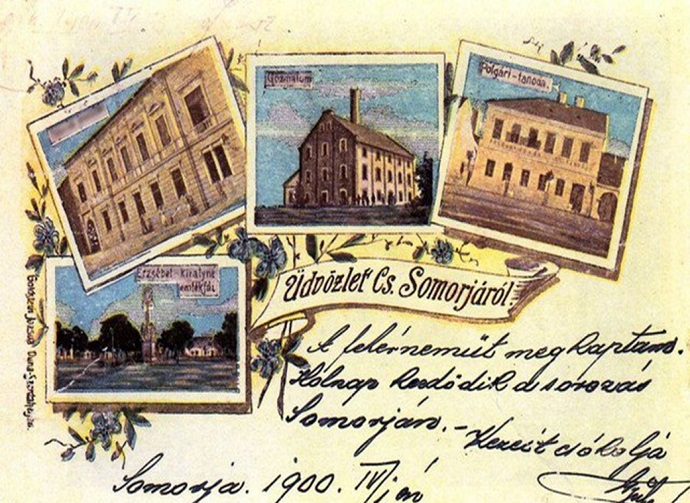 Gőzmalom
Polgári-tanoda.
Erzsébet-királyné
emlékfái
Üdvözlet Cs. Somorjáról.
A fehérneműt megkaptam.
Holnap kezdődik a sorozás
Somorján.-
Kezeit csókolja
Somorja. 1900. IV/1 én